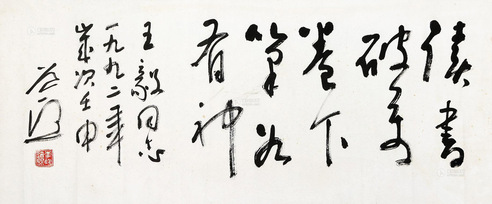 读书
破万
卷下
笔如
有神
王毅同志
一九九二年
岁次壬申